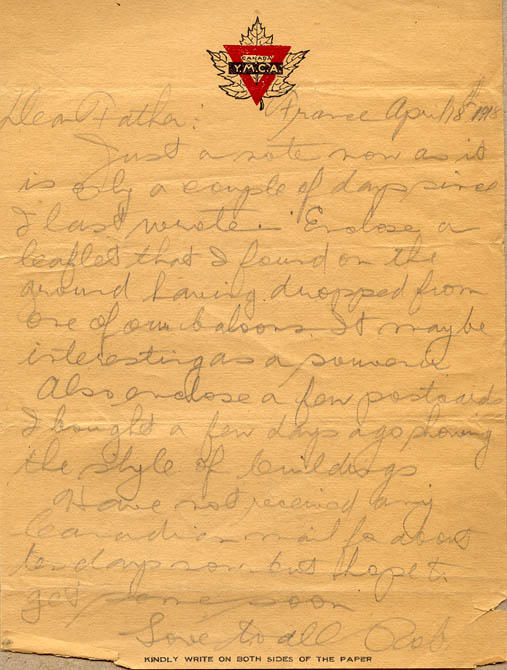 CANADA
Y.M.C.A.
Dear Father: France April 18th 1918
Just a note now as it
is only a couple of days since
I last wrote. Enclose a
leaflet that I found on the
ground having dropped from
one of our baloons. It may be
interesting as a souvenir
Also enclose a few postcards
I bought a few days ago showing
the style of buildings
Have not received any
Canadian mail for about
ten days now but hope to
get some soon
Love to all Rob.
KINDLY WRITE ON BOTH SIDES OF THE PAPER